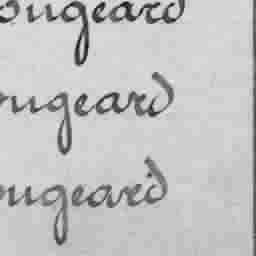 ougeard
ougeard
ougeard